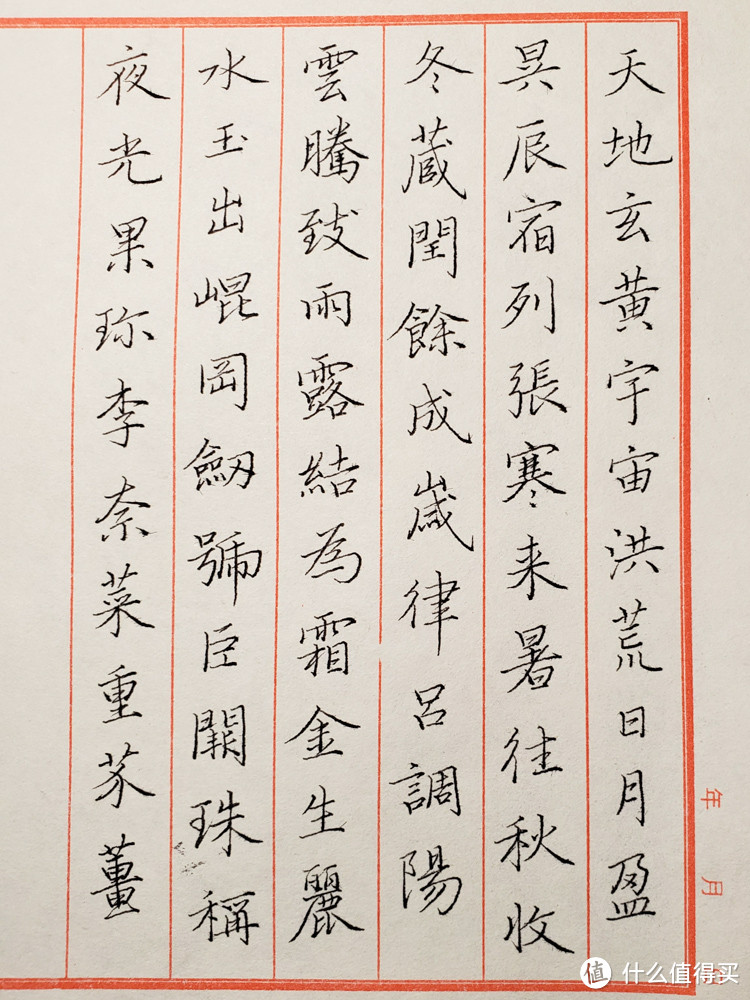 天地玄黄宇宙洪荒日月盈
昃辰宿列張寒来暑往秋收
冬蔵閏餘成嵗律呂調陽
雲騰致雨露結為霜金生麗
水玉出崐岡劒號臣闕珠稱
夜光果珎李奈菜重芥薑
年月
值 什么值得买